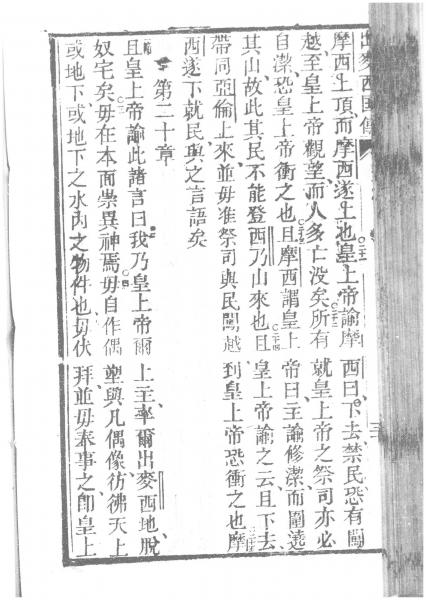 出麥西國傳
摩西上頂、而摩西遂上也。皇上帝諭摩西曰、下去禁民恐有闖
越至皇上帝觀望、而人多亡没矣。所有就皇上帝之祭司亦必
自潔、恐皇上帝衝之也。且摩西謂皇上帝曰、主諭修潔、而圍遶
其山、故此其民不能登西乃山來也。且皇上帝諭之云、且下去、
帶同亞倫上來、並毋准祭司與民闖越到皇上帝、恐衝之也。摩
西遂下就民、與之言語矣
第二十章
且皇上帝諭此諸言曰、我乃皇上帝爾上主、率爾出麥西地、脫
奴宅矣。毋在本面崇異神焉。毋自作偶塑、與凡偶像彷彿天上、
或地下、或地下之水內之物件也。毋伏拜、並毋奉事之、卽皇上